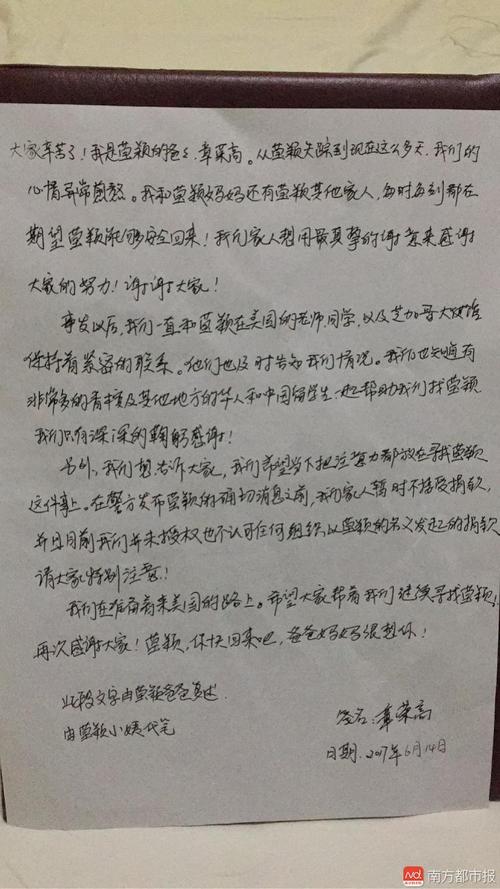 大家辛苦了！我是莹颖的爸爸，章荣高。从莹颖失踪到现在这么多天，我们的
心情异常煎熬。我和莹颖妈妈还有莹颖其他家人，每时每刻都在
期望莹颖能够安全回来！我们家人想用最真挚的谢意来感谢
大家的努力！谢谢大家！
事发以后，我们一直和莹颖在美国的老师同学，以及芝加哥大使馆
保持着紧密的联系。他们也及时告知我们情况。我们也知道有
非常多的香槟及其他地方的华人和中国留学生一起帮助我们找莹颖
我们只有深深的鞠躬感谢！
另外，我们想告诉大家，我们希望当下把注意力都放在寻找莹颖
这件事上。在警方发布莹颖的确切消息之前，我们家人暂时不接受捐款，
并且目前我们并未授权也不认可任何组织以莹颖的名义发起的捐款
请大家特别注意！
我们在准备着来美国的路上。希望大家帮着我们继续寻找莹颖！
再次感谢大家！莹颖，你快回来吧，爸爸妈妈很想你！
此段文字由莹颖爸爸口述
由莹颖小姨代笔
签名：章荣高
日期：2017年6月14日
南方都市报